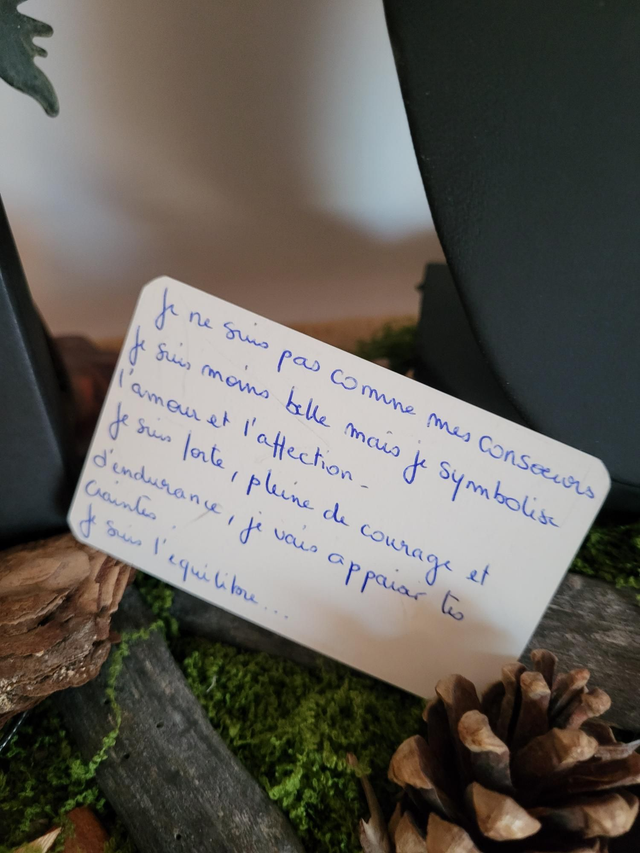 Je ne suis pas comme mes consœurs
Je suis moins belle mais je symbolise
l'amour et l'affection -
Je suis forte, pleine de courage et
d'endurance, je vais appaiser tes
craintes.
Je suis l'equilibre....